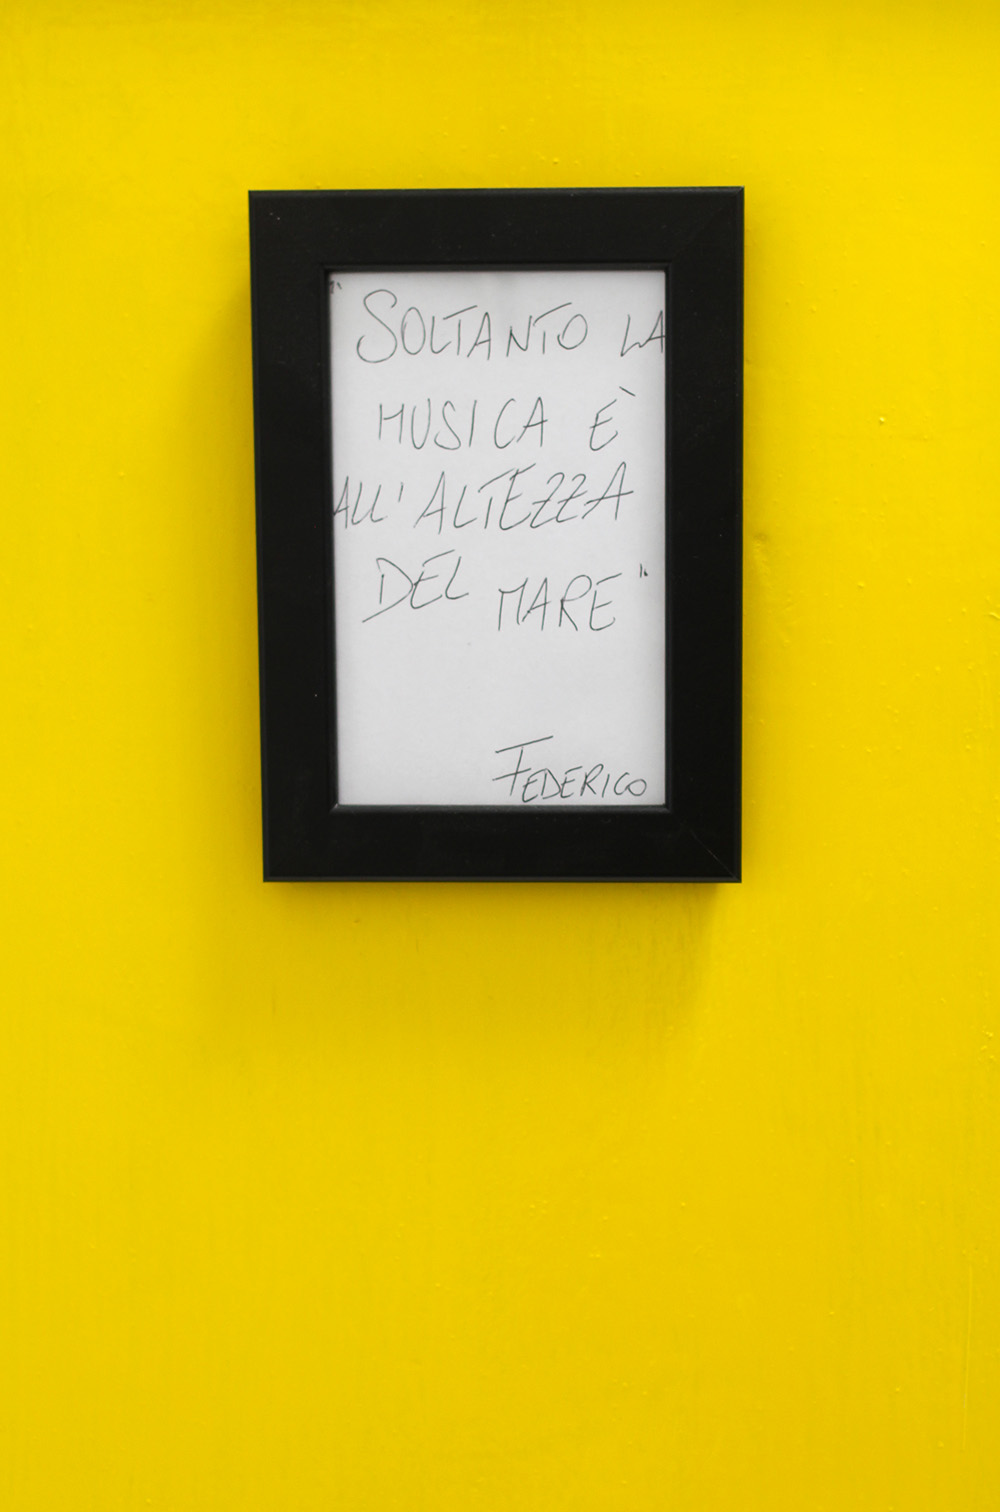 "SOLTANTO LA
MUSICA È
ALL'ALTEZZA
DEL MARE"
FEDERICO